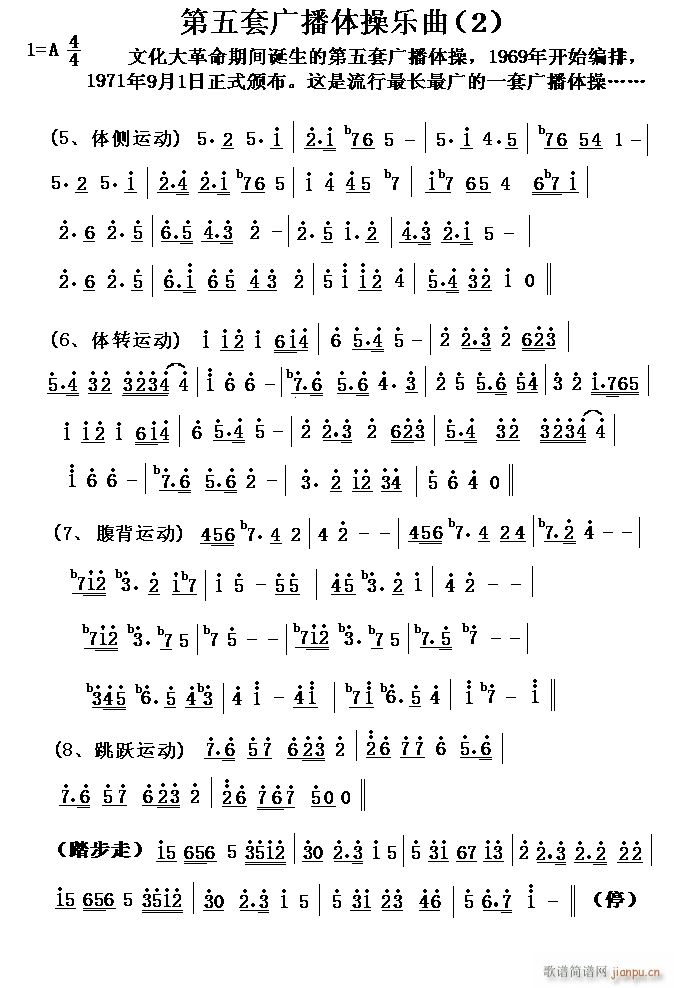 第五套广播体操乐曲(2)
1=A 4/4 文化大革命期间诞生的第五套广播体操，1969年开始编排，
1971年9月1日正式颁布。这是流行最长最广的一套广播体操……
(5、体侧运动) 5·2 5·i | 2·i b76 5 - | 5·i 4·5 | b76 54 1 - |
5·2 5·i | 2·4 2·i b76 5 | i 4 45 b7 | ib7 65 4 6b7 i |
2·6 2·5 | 6·5 4·3 2 - | 2·5 i·2 | 4·3 2·i 5 - |
2·6 2·5 | 6·i 65 43 2 | 5 i i2 4 | 5·4 32 i 0 ‖
(6、体转运动) i i2 i 6i4 | 6 5·4 5 - | 2 2·3 2 623 |
5·4 32 3234 4 | i 6 6 - | b7·6 5·6 4·3 | 2 5 5·6 54 | 3 2 i·765 |
i i2 i 6i4 | 6 5·4 5 - | 2 2·3 2 623 | 5·4 32 3234 4 |
i 6 6 - | b7·6 5·6 2 - | 3·2 i2 34 | 5 6 4 0 ‖
(7、腹背运动) 456 b7·4 2 | 4 2 - - | 456 b7·4 24 | b7·2 4 - - |
b7i2 b3·2 ib7 | i 5 - 55 | 45 b3·2 i | 4 2 - - |
b7i2 b3·b7 5 | b7 5 - - | b7i2 b3·b7 5 | b7·5 b7 - - |
b345 b6·5 4b3 | 4 i - 4i | b7i b6·5 4 | i b7 - i ‖
(8、跳跃运动) 7·6 57 623 2 | 26 77 6 5·6 |
7·6 57 623 2 | 26 767 500 ‖
(踏步走) i5 656 5 35i2 | 30 2·3 i 5 | 5 3i 67 i3 | 2 2·3 2·2 22 |
i5 656 5 35i2 | 30 2·3 i 5 | 5 3i 2·3 7·6 | 5 i - ‖ (停)
歌谱简谱网
jianpu.cn